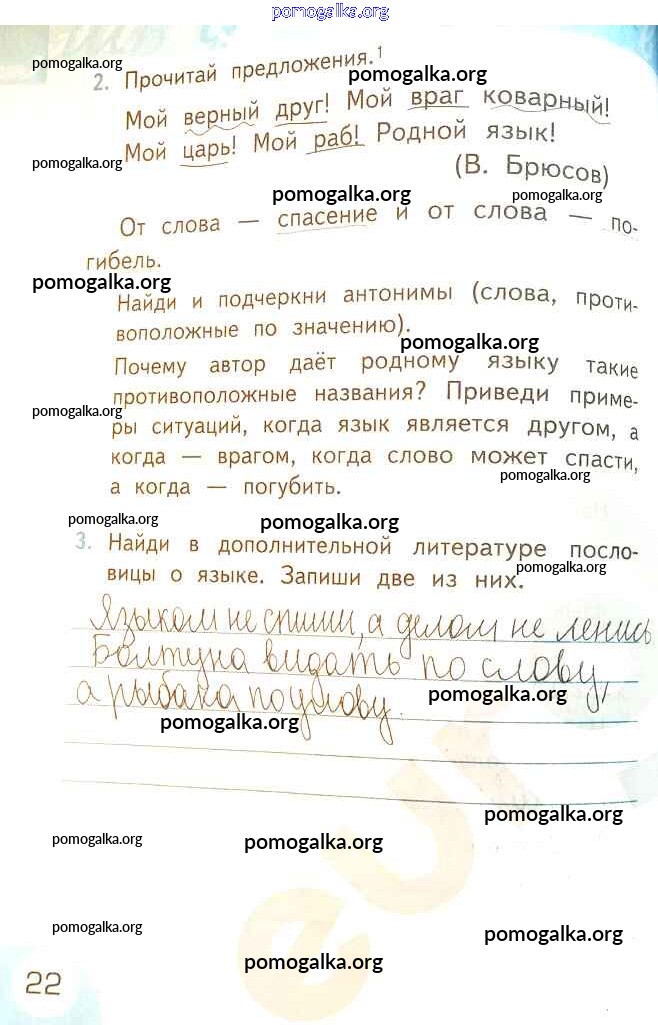 pomogalka.org
pomogalka.org
2. Прочитай предложения.¹
pomogalka.org
Мой верный друг! Мой враг коварный!
Мой царь! Мой раб! Родной язык!
pomogalka.org
(В. Брюсов)
pomogalka.org
pomogalka.org
От слова — спасение и от слова — по-
гибель.
pomogalka.org
Найди и подчеркни антонимы (слова, проти-
воположные по значению).
pomogalka.org
Почему автор даёт родному языку такие
противоположные названия? Приведи приме-
pomogalka.org
ры ситуаций, когда язык является другом, а
когда — врагом, когда слово может спасти,
pomogalka.org
а когда — погубить.
pomogalka.org
pomogalka.org
3. Найди в дополнительной литературе посло-
pomogalka.org
вицы о языке. Запиши две из них.
Языком не спиши, а делом не ленись
Болтуна видать по слову,
а рыбака по улову.
pomogalka.org
pomogalka.org
pomogalka.org
pomogalka.org
pomogalka.org
pomogalka.org
pomogalka.org
pomogalka.org
22